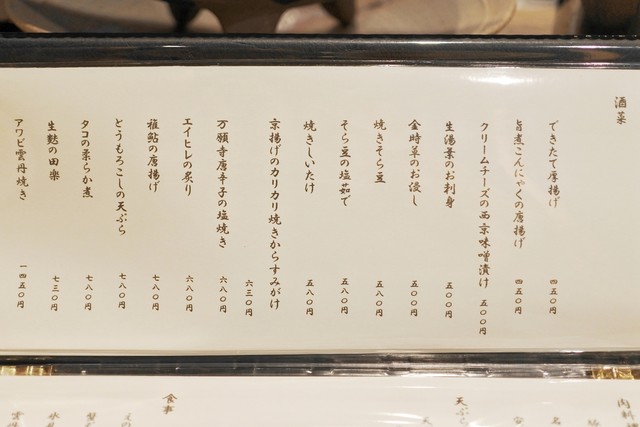 酒菜
できたて厚揚げ 四五〇円
旨煮こんにゃくの唐揚げ 四五〇円
クリームチーズの西京味噌漬け 五〇〇円
生湯葉のお刺身 五〇〇円
金時草のお浸し 五〇〇円
焼きそら豆 五八〇円
そら豆の塩茹で 五八〇円
焼きしいたけ 五八〇円
京揚げのカリカリ焼きからすみがけ 六三〇円
万願寺唐辛子の塩焼き 六八〇円
エイヒレの炙り 六八〇円
稚鮎の唐揚げ 七八〇円
とうもろこしの天ぷら 七八〇円
タコの柔らか煮 七八〇円
生麩の田楽 七三〇円
アワビ雲丹焼き 一四五〇円
肉料
天ぷら
食事